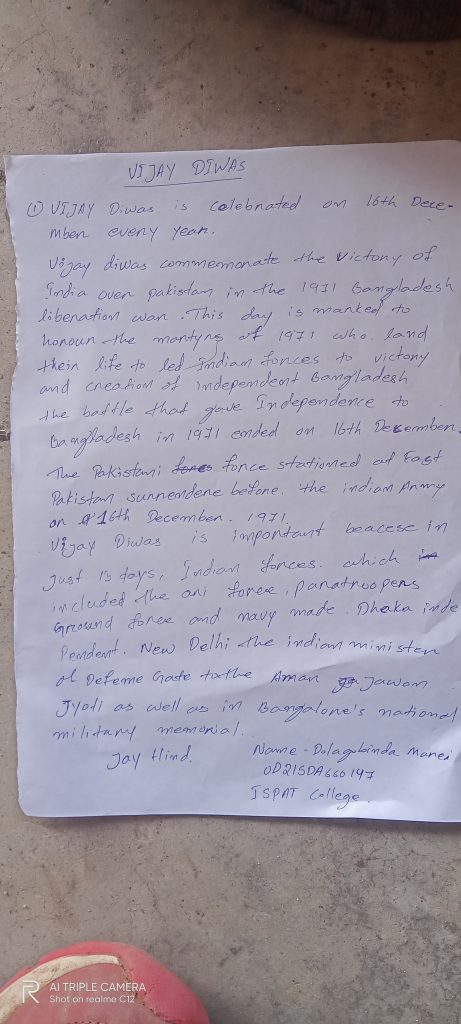 VIJAY DIWAS
① VIJAY Diwas is celebnated on 16th Dece-
mben eveny yean.
Vijay diwas commemonate the victony of
India oven pakistan in the 1971 bangladesh
libenation wan. This day is manked to
honoun the mantyns of 1971 who. land
thein life to led Indian fonces to victony
and cneation of independent bangladesh
the battle that gave Independence to
bangladesh in 1971 ended on 16th December.
The Pakistani fonce stationed at East
Pakistan sunnendene befone. the indian Anmy
on 16th Decemben. 1971.
Vijay Diwas is impontant beacese in
Just 13 days, Indian fonces. which
included the ani fonee, panatnoopens
Gnound fonee and navy made. Dhaka inde
Pendent. New Delhi the indian ministen
of Defeme Gate to the Aman Jawan
Jyoti as well as in Bangalone's national
militany memonial.
Jay Hind. Name - Dolagobinda
OD21SDA660147
ISPAT College.
R AI TRIPLE CAMERA
Shot on realme C12